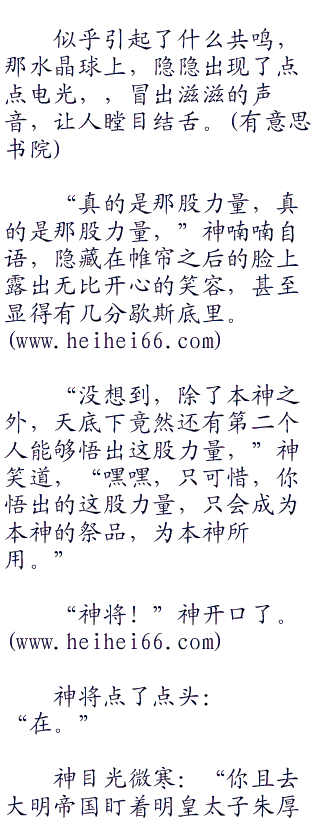 似乎引起了什么共鸣，
那水晶球上，隐隐出现了点
点电光，，冒出滋滋的声
音，让人瞠目结舌。(有意思
书院)
“真的是那股力量，真
的是那股力量，”神喃喃自
语，隐藏在帷帘之后的脸上
露出无比开心的笑容，甚至
显得有几分歇斯底里。
(www.heihei66.com)
“没想到，除了本神之
外，天底下竟然还有第二个
人能够悟出这股力量，”神
笑道，“嘿嘿，只可惜，你
悟出的这股力量，只会成为
本神的祭品，为本神所
用。”
“神将！”神开口了。
(www.heihei66.com)
神将点了点头：
“在。”
神目光微寒：“你且去
大明帝国盯着明皇太子朱厚